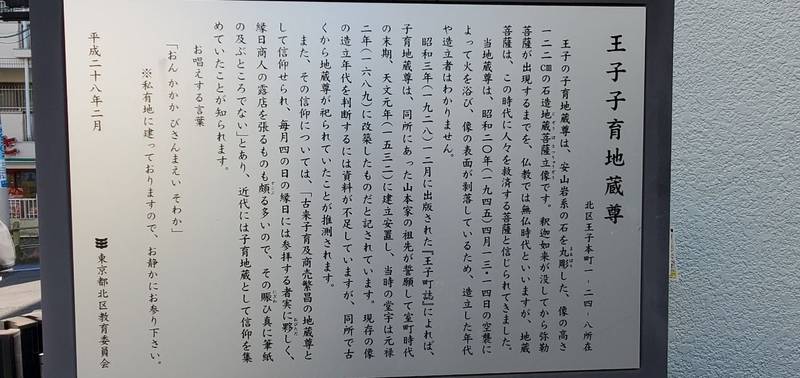 王子子育地蔵尊
北区王子本町一-二四-八所在
王子の子育地蔵尊は、安山岩系の石を丸彫した、像の高さ
一二二㎝の石造地蔵菩薩立像です。釈迦如来が没してから弥勒
菩薩が出現するまでを、仏教では無仏時代といいますが、地蔵
菩薩は、この時代に人々を救済する菩薩と信じられてきました。
当地蔵尊は、昭和二〇年(一九四五)四月一三・一四日の空襲に
よって火を浴び、像の表面が剥落しているため、造立した年代
や造立者はわかりません。
昭和三年(一九二八)一二月に出版された『王子町誌』によれば、
子育地蔵尊は、同所にあった山本家の祖先が誓願して室町時代
の末期、天文元年(一五三二)に建立安置し、当時の堂宇は元禄
二年(一六八九)に改築したものだと記されています。現存の像
の造立年代を判断するには資料が不足していますが、同所で古
くから地蔵尊が祀られていたことが推測されます。
また、その信仰については、「古来子育及商売繁昌の地蔵尊と
して信仰せられ、毎月四の日の縁日には参拝する者実に夥しく、
縁日商人の露店を張るものも頗る多いので、その賑ひ真に筆紙
の及ぶところでない」とあり、近代には子育地蔵として信仰を集
めていたことが知られます。
お唱えする言葉
「おん かかか びさんまえい そわか」
※私有地に建っておりますので、お静かにお参り下さい。
平成二十八年二月
東京都北区教育委員会